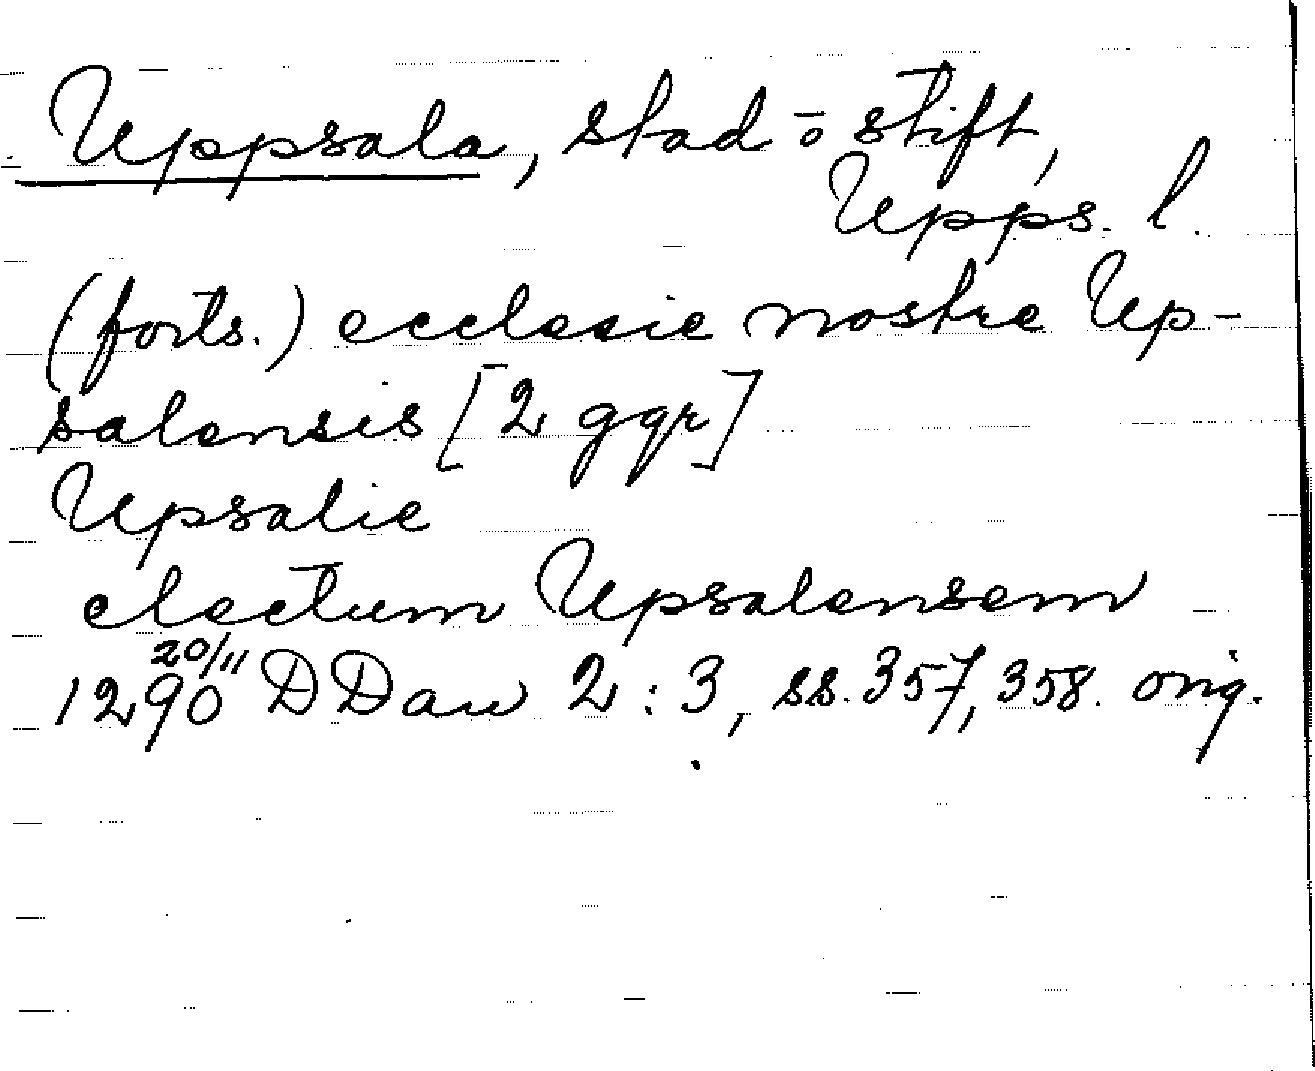 Uppsala, stad o stift,
Upps. l.
(forts.) ecclesie nostre Up-
salensis [2 ggr]
Upsalie
electum Upsalensem
20/11
1290 DDan 2:3, ss. 357, 358. orig.